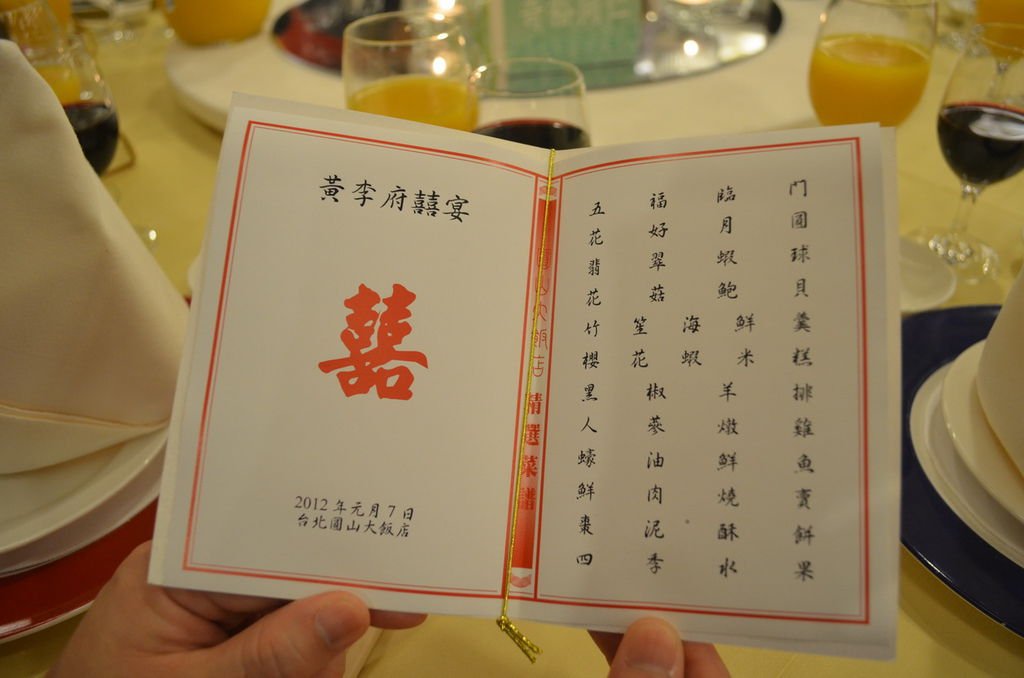 黃李府囍宴
囍
2012 年元月7日
台北圓山大飯店
圓山大飯店 精選菜譜
五福臨門
花好月圓
翡翠蝦球
花菇鮑貝
竹笙海鮮羹
櫻花蝦米糕
黑椒羊排
人蔘燉雞
蠔油鮮魚
鮮肉燒賣
棗泥酥餅
四季水果